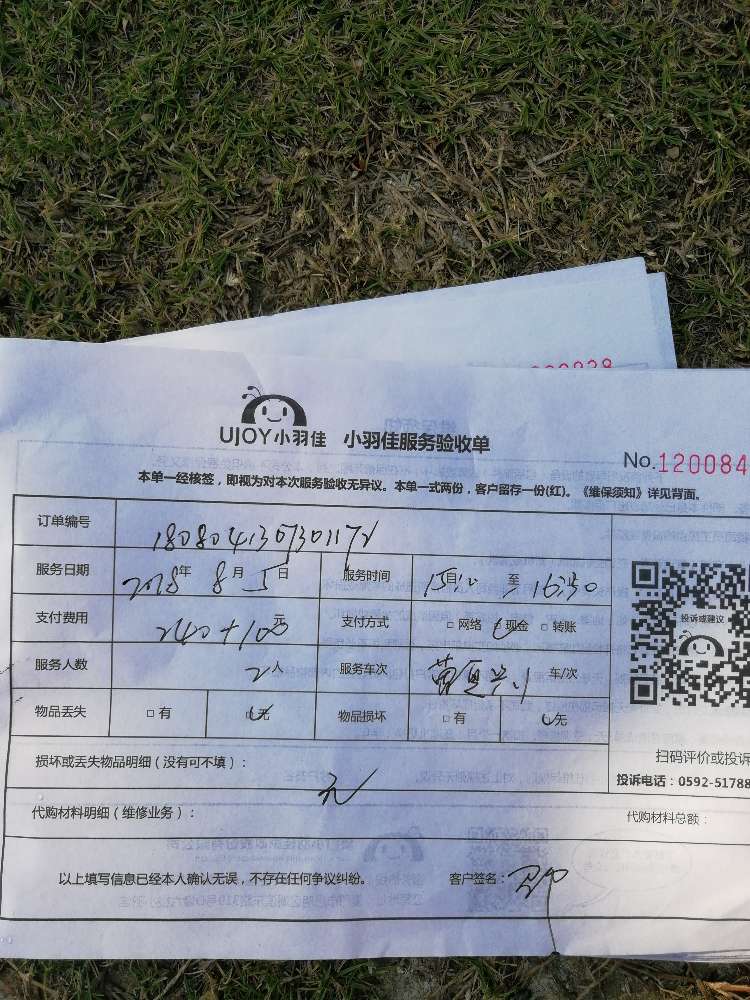 UJOY小羽佳 小羽佳服务验收单
No.120084
本单一经核签,即视为对本次服务验收无异议。本单一式两份,客户留存一份(红)。《维保须知》详见背面。
订单编号
服务日期 2018年 8月 5日 服务时间 至 16:50
支付费用 240+100元 支付方式 □网络 现金 □转账
服务人数 2人 服务车次 车/次
物品丢失 □有 无 物品损坏 □有 无
投诉或建议
扫码评价或投诉
投诉电话:0592-51788
损坏或丢失物品明细(没有可不填):
无
代购材料明细(维修业务): 代购材料总额:
以上填写信息已经本人确认无误,不存在任何争议纠纷。 客户签名: